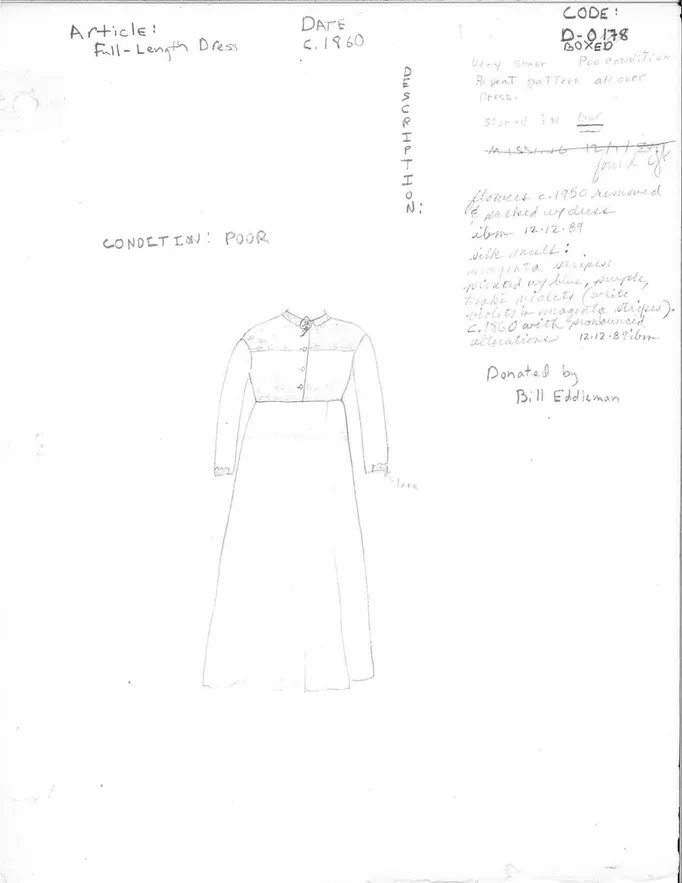 Article:
Full-Length Dress
DATE
c. 1860
CODE:
D-0178
BOXED
DESCRIPTION:
Very sheer Poo condition
Repeat pattern all over
Dress.
Stored in box
MISSING 12/1/
found
flowers c. 1950 removed
& packed w/ dress
ibm 12·12·89
silk :
magenta stripes:
printed w/ blue, purple,
khaki violets (white
violets in magenta stripes).
c. 1860 with pronounced
alterations 12·12·89 ibm
Donated by
Bill Eddleman
CONDITION: POOR
lace